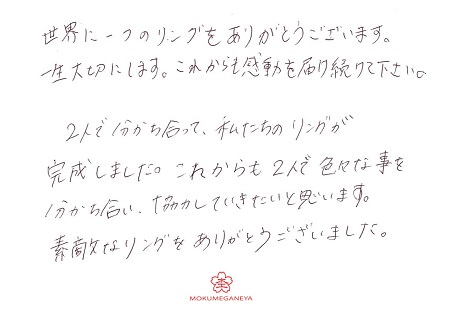 世界に一つのリングをありがとうございます。
一生大切にします。これからも感動を届け続けて下さい。
2人で分かち合って、私たちのリングが
完成しました。これからも2人で色々な事を
分かち合い、協力していきたいと思います。
素敵なリングをありがとうございました。
MOKUMEGANEYA